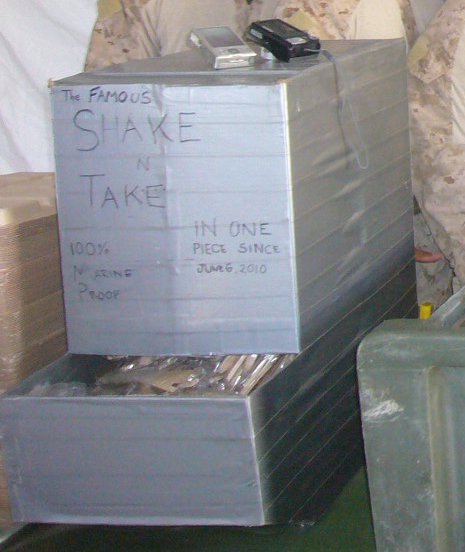 The FAMOUS
SHAKE
N
TAKE
100%
MARINE
PROOF
IN ONE
PIECE SINCE
JUNE 6, 2010